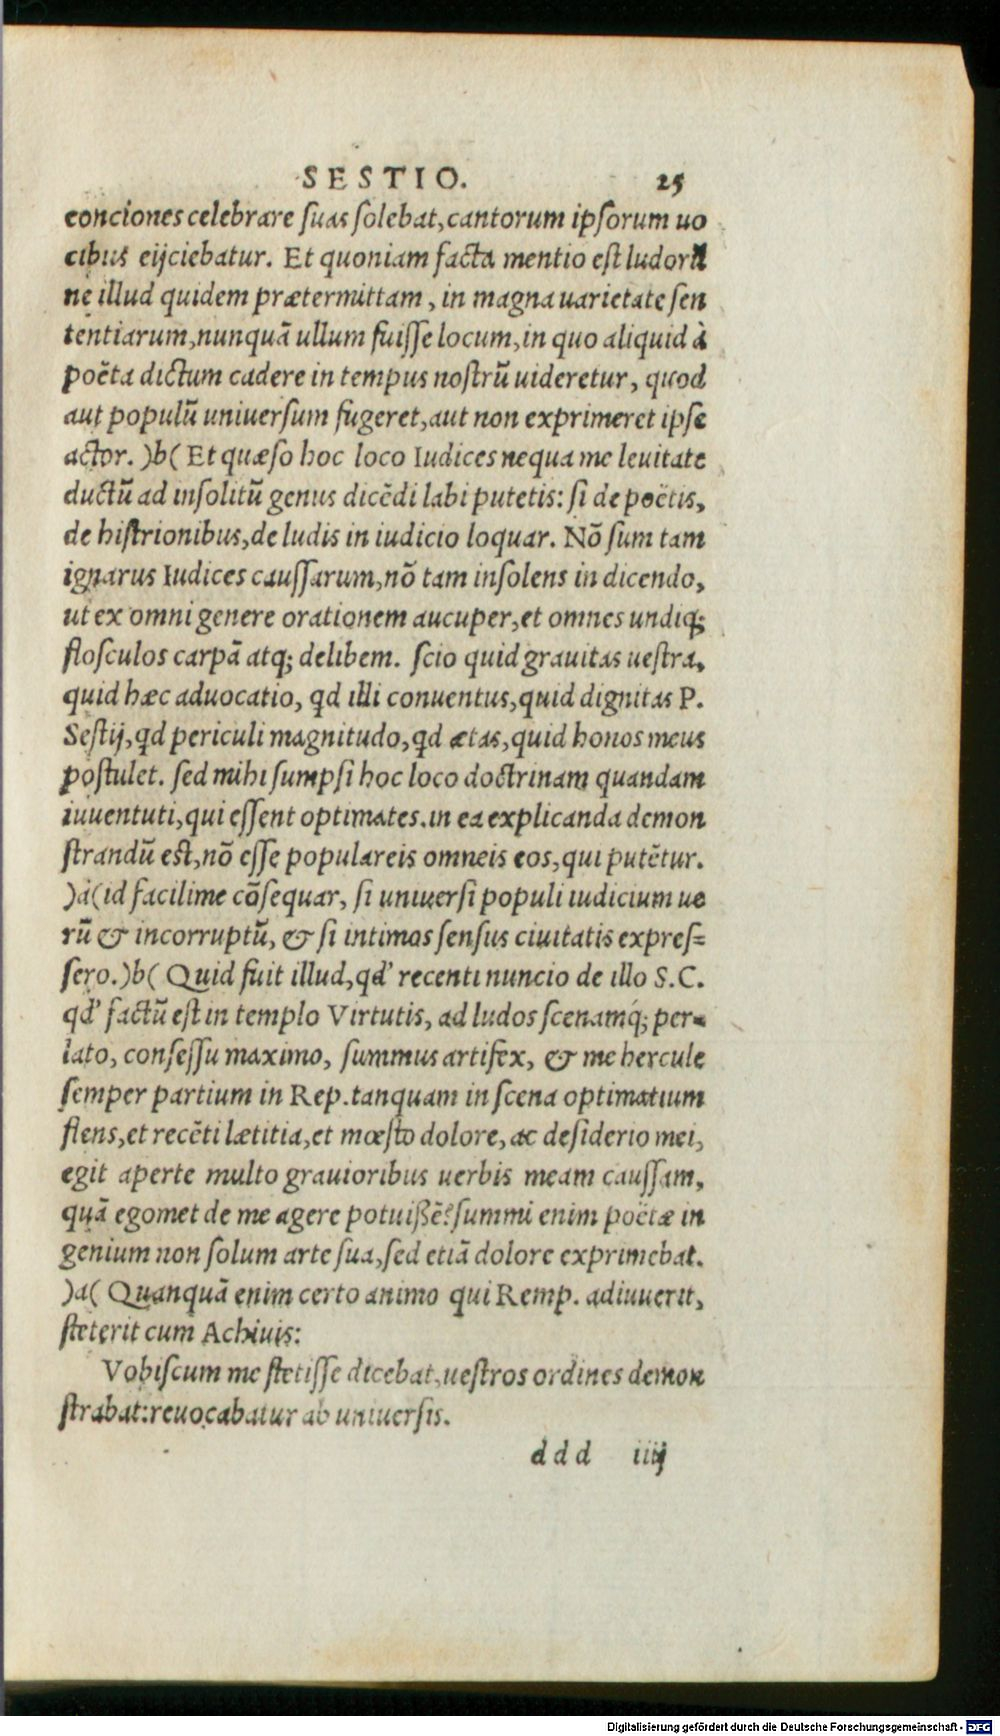 SESTIO. 25
conciones celebrare suas solebat, cantorum ipsorum uo
cibus eijciebatur. Et quoniam facta mentio est ludorū
ne illud quidem prætermittam, in magna uarietate sen
tentiarum, nunquā ullum fuisse locum, in quo aliquid à
poëta dictum cadere in tempus nostrū uideretur, quod
aut populū uniuersum fugeret, aut non exprimeret ipse
actor. )b( Et quæso hoc loco Iudices ne qua me leuitate
ductū ad insolitū genus dicēdi labi putetis: si de poëtis,
de histrionibus, de ludis in iudicio loquar. Nō sum tam
ignarus Iudices caussarum, nō tam insolens in dicendo,
ut ex omni genere orationem aucuper, et omnes undiq;
flosculos carpā atq; delibem. scio quid grauitas uestra,
quid hæc aduocatio, qd illi conuentus, quid dignitas P.
Sestij, qd periculi magnitudo, qd ætas, quid honos meus
postulet. sed mihi sumpsi hoc loco doctrinam quandam
iuuentuti, qui essent optimates. in ea explicanda demon
strandū est, nō esse populareis omneis eos, qui putētur.
)a( id facilime cōsequar, si uniuersi populi iudicium ue
rū & incorruptū, & si intimos sensus ciuitatis expres=
sero. )b( Quid fuit illud, qd' recenti nuncio de illo S.C.
qd' factū est in templo Virtutis, ad ludos scenamq́; per-
lato, consessu maximo, summus artifex, & me hercule
semper partium in Rep. tanquam in scena optimatium
flens, et recēti lætitia, et mœsto dolore, ac desiderio mei,
egit aperte multo grauioribus uerbis meam caussam,
quā egomet de me agere potuißē? summi enim poëtæ in
genium non solum arte sua, sed etiā dolore exprimebat.
)a( Quanquā enim certo animo qui Remp. adiuuerit,
steterit cum Achiuis:
Vobiscum me stetisse dicebat, uestros ordines demon
strabat: reuocabatur ab uniuersis.
ddd iiij
Digitalisierung gefördert durch die Deutsche Forschungsgemeinschaft - DFG